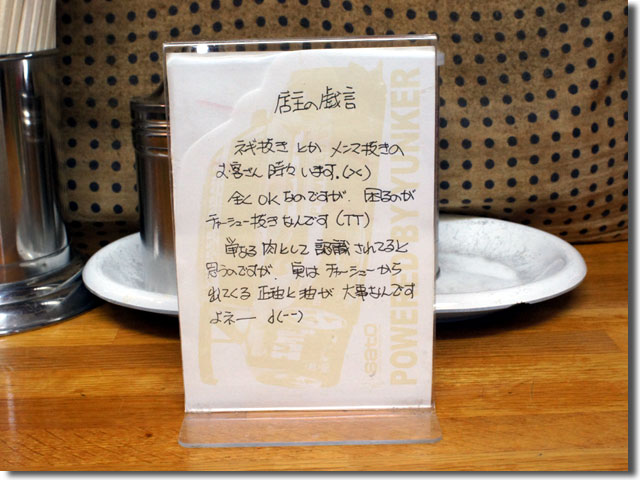 店主の戯言
ネギ抜き とか メンマ抜きの
お客さん 時々 います。(><)
全く OK なのですが、困るのが
チャーシュー抜きなんです (TT)
単なる 肉として 認識 されてると
思うのですが、実は チャーシューから
出てくる 正油と油が 大事なんです
よネー d(--)
POWERED BY YUNKER
sato